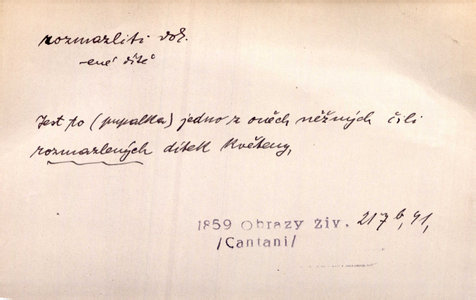 rozmazliti dok.
-ené dítě
Jest to (pupalka) jedno z oněch něžných čili
rozmazlených dítek Květeny,
1859 Obrazy živ. 217b, 41,
/Cantani/